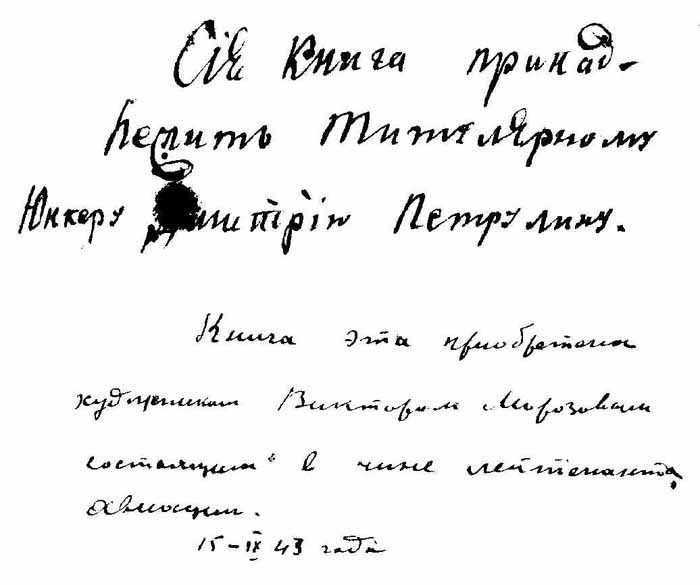 Сія Книга принад-
лежитъ Титулярному
Юнкеру Дмитрію Петрулину.
Книга эта приобретена
художником Виктором Морозовым
состоящим в чине лейтенанта
авиации.
15-IX 43 года